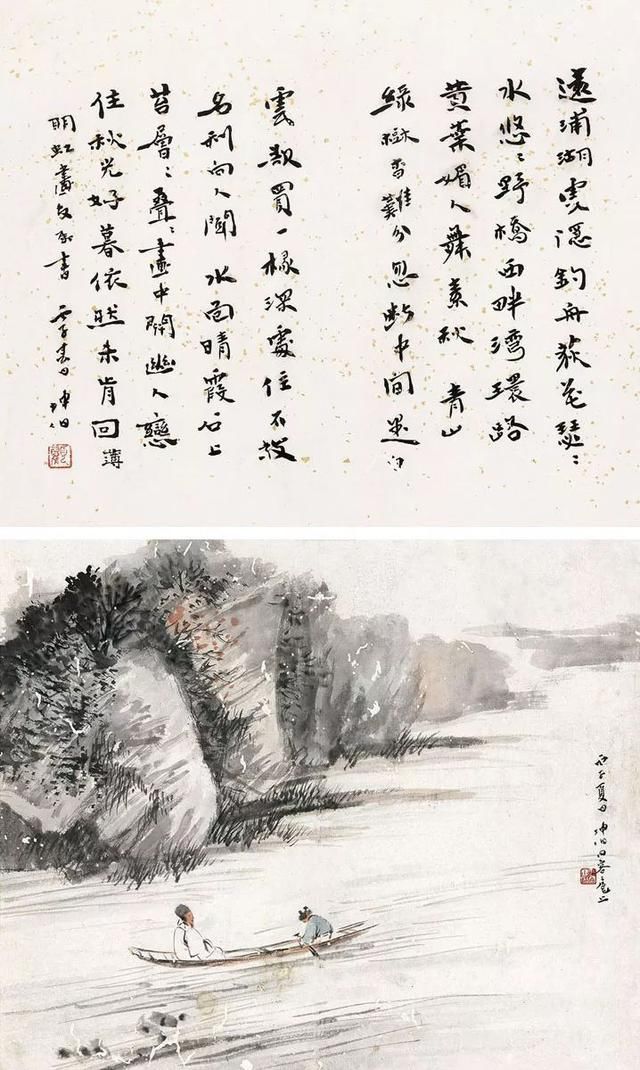 遠浦潮虛隱釣舟荻花瑟〻
水悠〻野橋西畔灣環路
黃葉媚人舞素秋 青山
綠樹杳難分忽斷中間是白
雲欲買一椽深處住不放
名利向人聞 水面晴霞石上
苔層〻疊〻畫中開幽人戀
住秋光好暮依然未肯回 薄
明虹畫友 書 丙子春日 坤伯
丙子夏日 坤伯